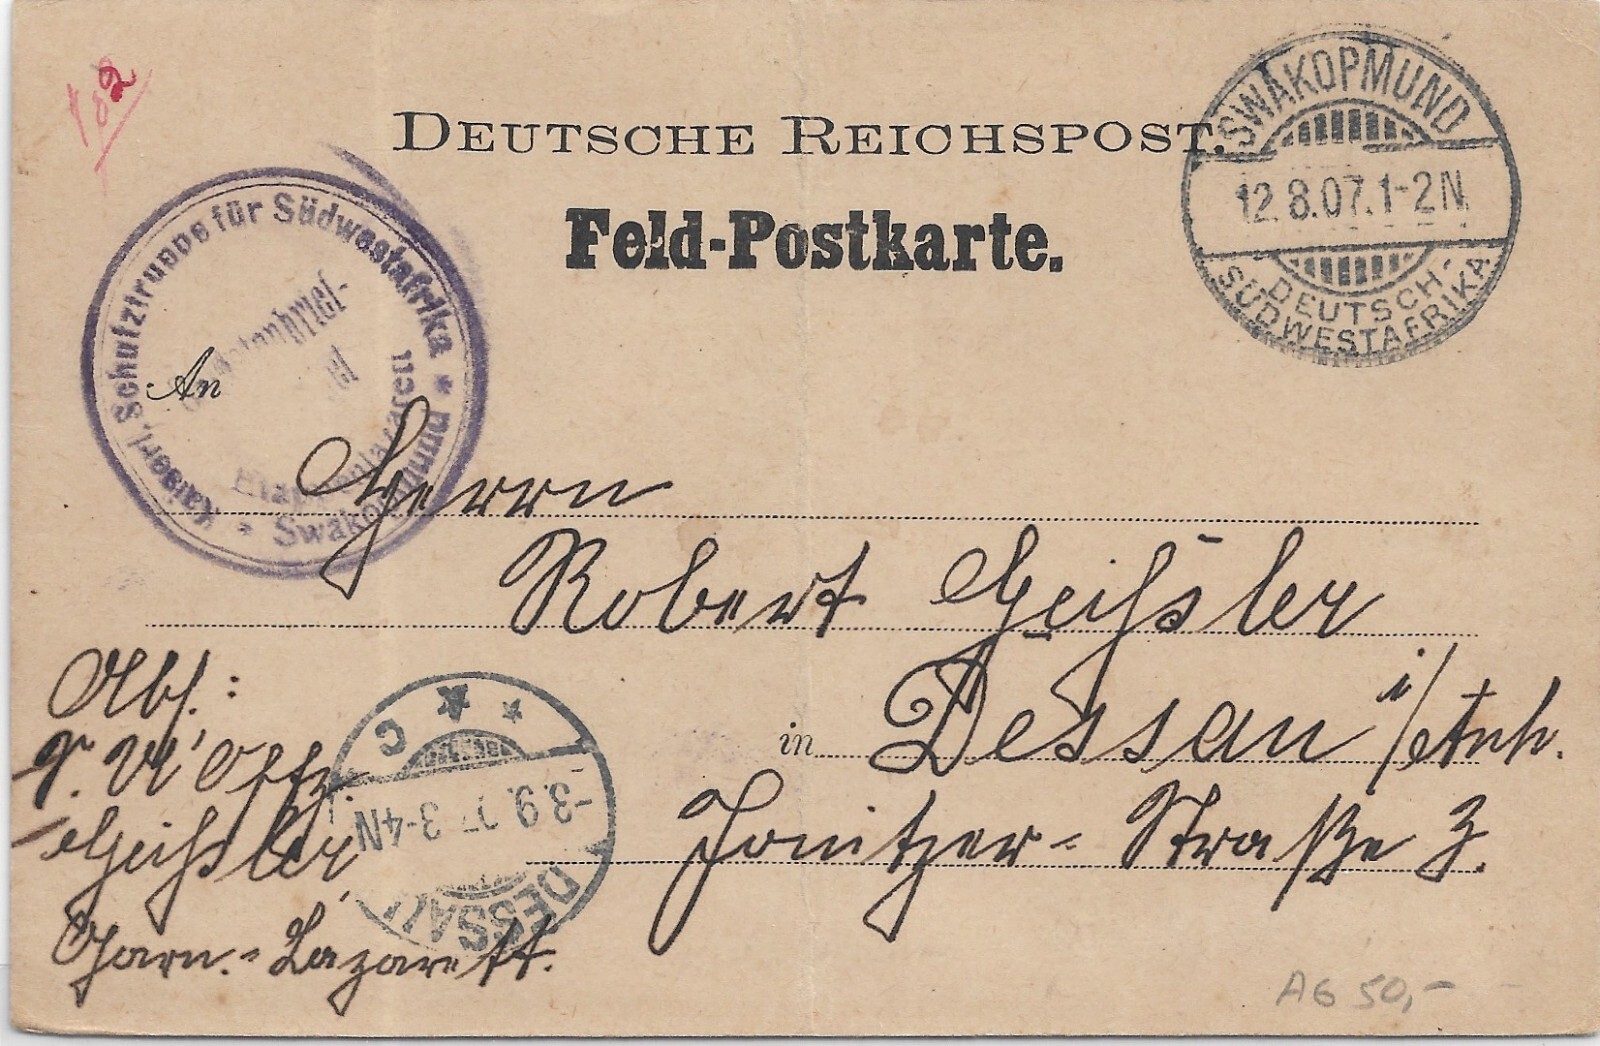 182
DEUTSCHE REICHSPOST.
Feld-Postkarte.
SWAKOPMUND
12.8.07.1-2N.
DEUTSCH-
SÜDWESTAFRIKA
Kaiserl. Schutztruppe für Südwestafrika
Swakopmund
An
Herrn
Robert Geißler
in Dessau i/Anh.
Jonitzer-Straße 3.
Abs.:
Geißler
Garn.-Lazarett.
DESSAU
-3.9.07 3-4N
C
AG 50,-